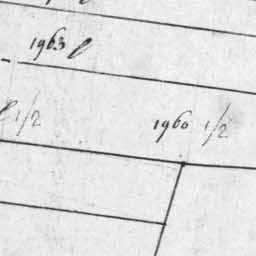 1963
1/2 1960 1/2